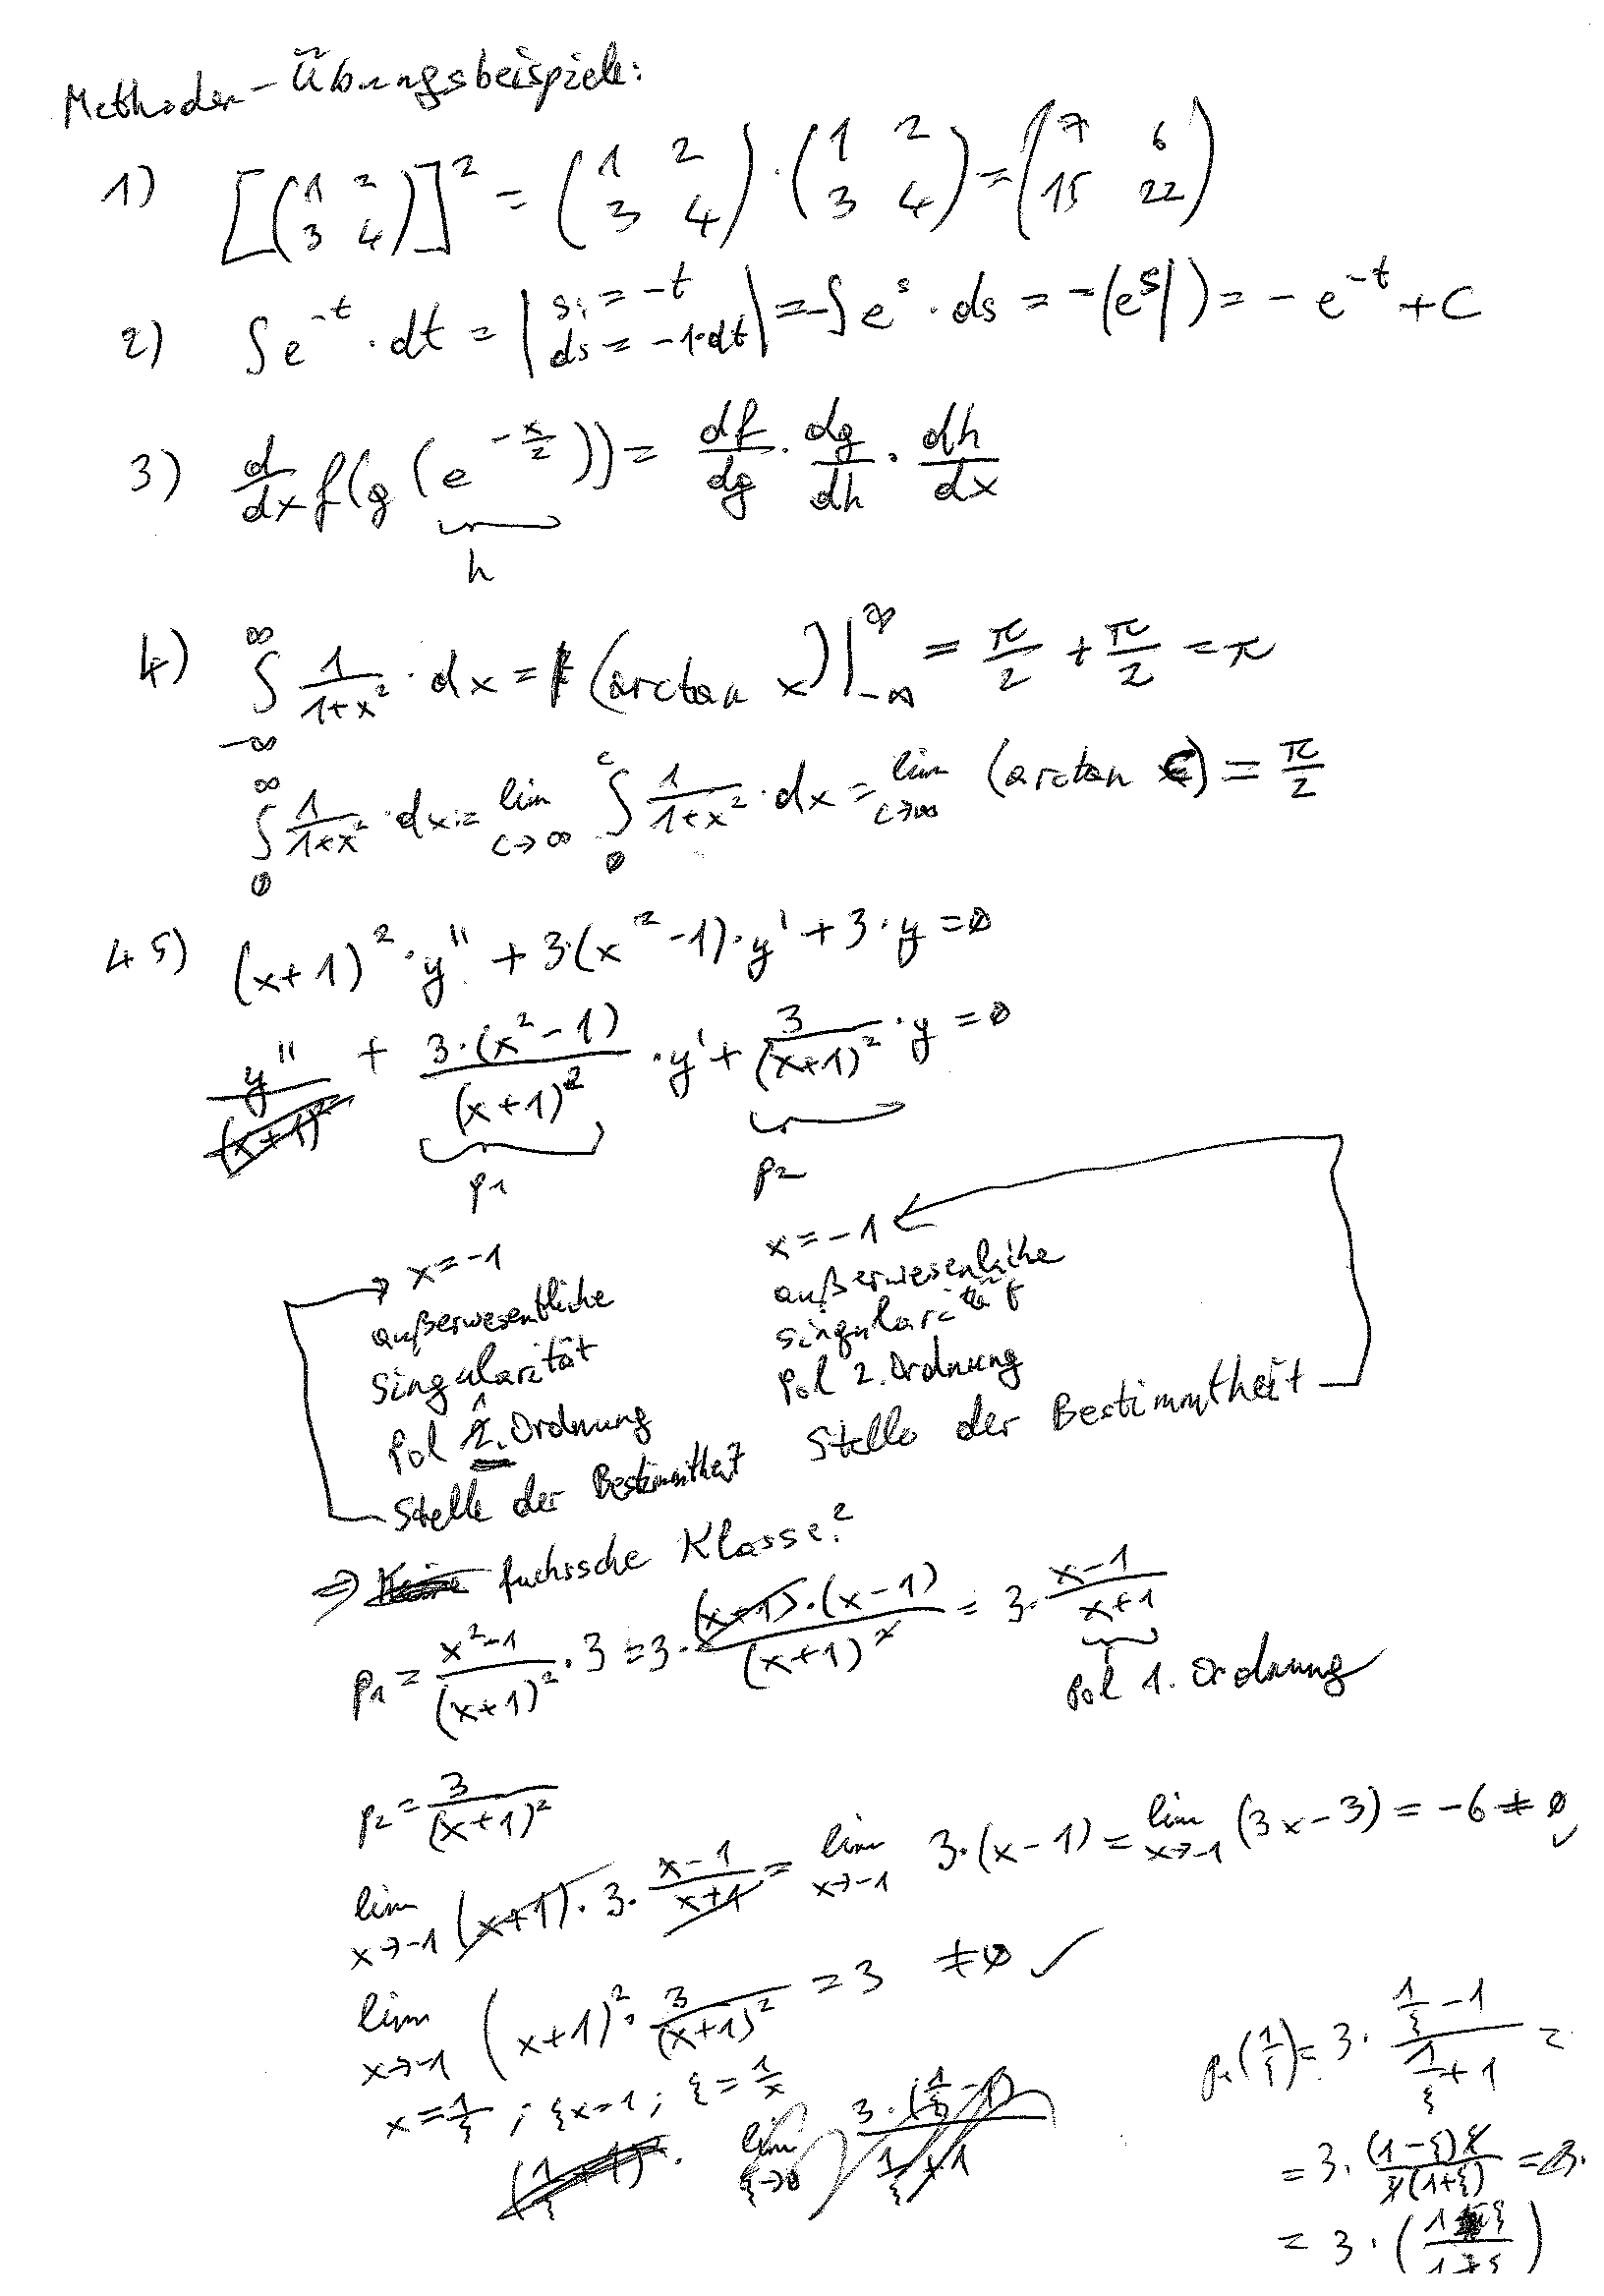 Methoden-Übungsbeispiele:
1) [(1 2 / 3 4)]² = (1 2 / 3 4) · (1 2 / 3 4) = (7 6 / 15 22)
2) ∫ e^(-t) · dt = | s := -t / ds = -1·dt | = -∫ e^s · ds = -(e^s|) = -e^(-t) + C
3) d/dx f(g(e^(-x/2))) = df/dg · dg/dh · dh/dx
h
4) ∫_{-∞}^{∞} 1/(1+x²) · dx = (arctan x)|_{-∞}^{∞} = π/2 + π/2 = π
∫_0^∞ 1/(1+x²) · dx = lim_{c→∞} ∫_0^c 1/(1+x²) · dx = lim_{c→∞} (arctan c) = π/2
4 5) (x+1)² · y'' + 3·(x²-1)·y' + 3·y = 0
y''/(x+1)² + 3·(x²-1)/(x+1)² · y' + 3/(x+1)² · y = 0
p1 p2
x=-1
außerwesentliche
Singularität
Pol 1. Ordnung
Stelle der Bestimmtheit
x=-1
außerwesenliche
Singularität
Pol 2. Ordnung
Stelle der Bestimmtheit
⇒ Keine fuchssche Klasse?
p1 = (x²-1)/(x+1)² · 3 = 3 · (x+1)·(x-1)/(x+1)² = 3 · (x-1)/(x+1)
Pol 1. Ordnung
p2 = 3/(x+1)²
lim_{x→-1} (x+1) · 3 · (x-1)/(x+1) = lim_{x→-1} 3·(x-1) = lim_{x→-1} (3x-3) = -6 ≠ 0 ✓
lim_{x→-1} (x+1)² · 3/(x+1)² = 3 ≠ 0 ✓
x = 1/ξ ; ξx=1 ; ξ = 1/x
(1/ξ+1)² · lim_{ξ→0} 3·(1/ξ-1)/(1/ξ+1)
p1(1/ξ) = 3 · (1/ξ-1)/(1/ξ+1) =
= 3 · (1-ξ)ξ/(ξ(1+ξ)) = 3.
= 3 · ((1-ξ)/(1+ξ))